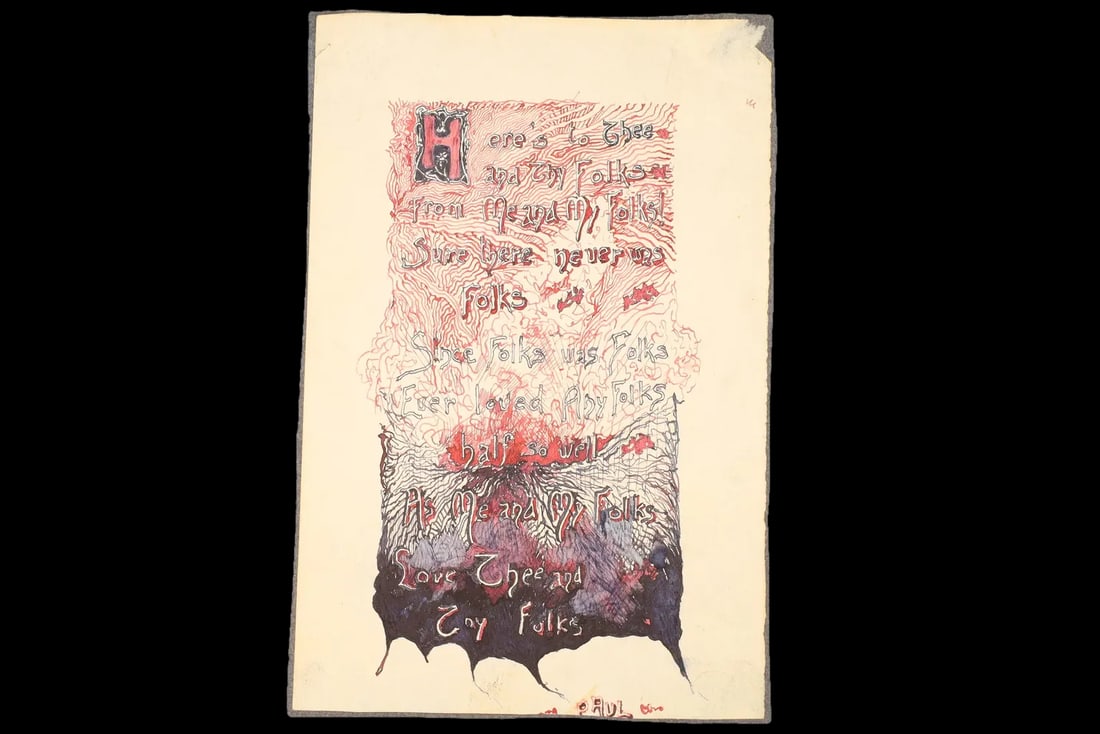 Here's to Thee
and Thy Folks
from Me and My Folks!
Sure there never was
Folks
Since Folks was Folks
Ever loved Any Folks
half so well
As Me and My Folks
Love Thee and
Thy Folks
PAUL